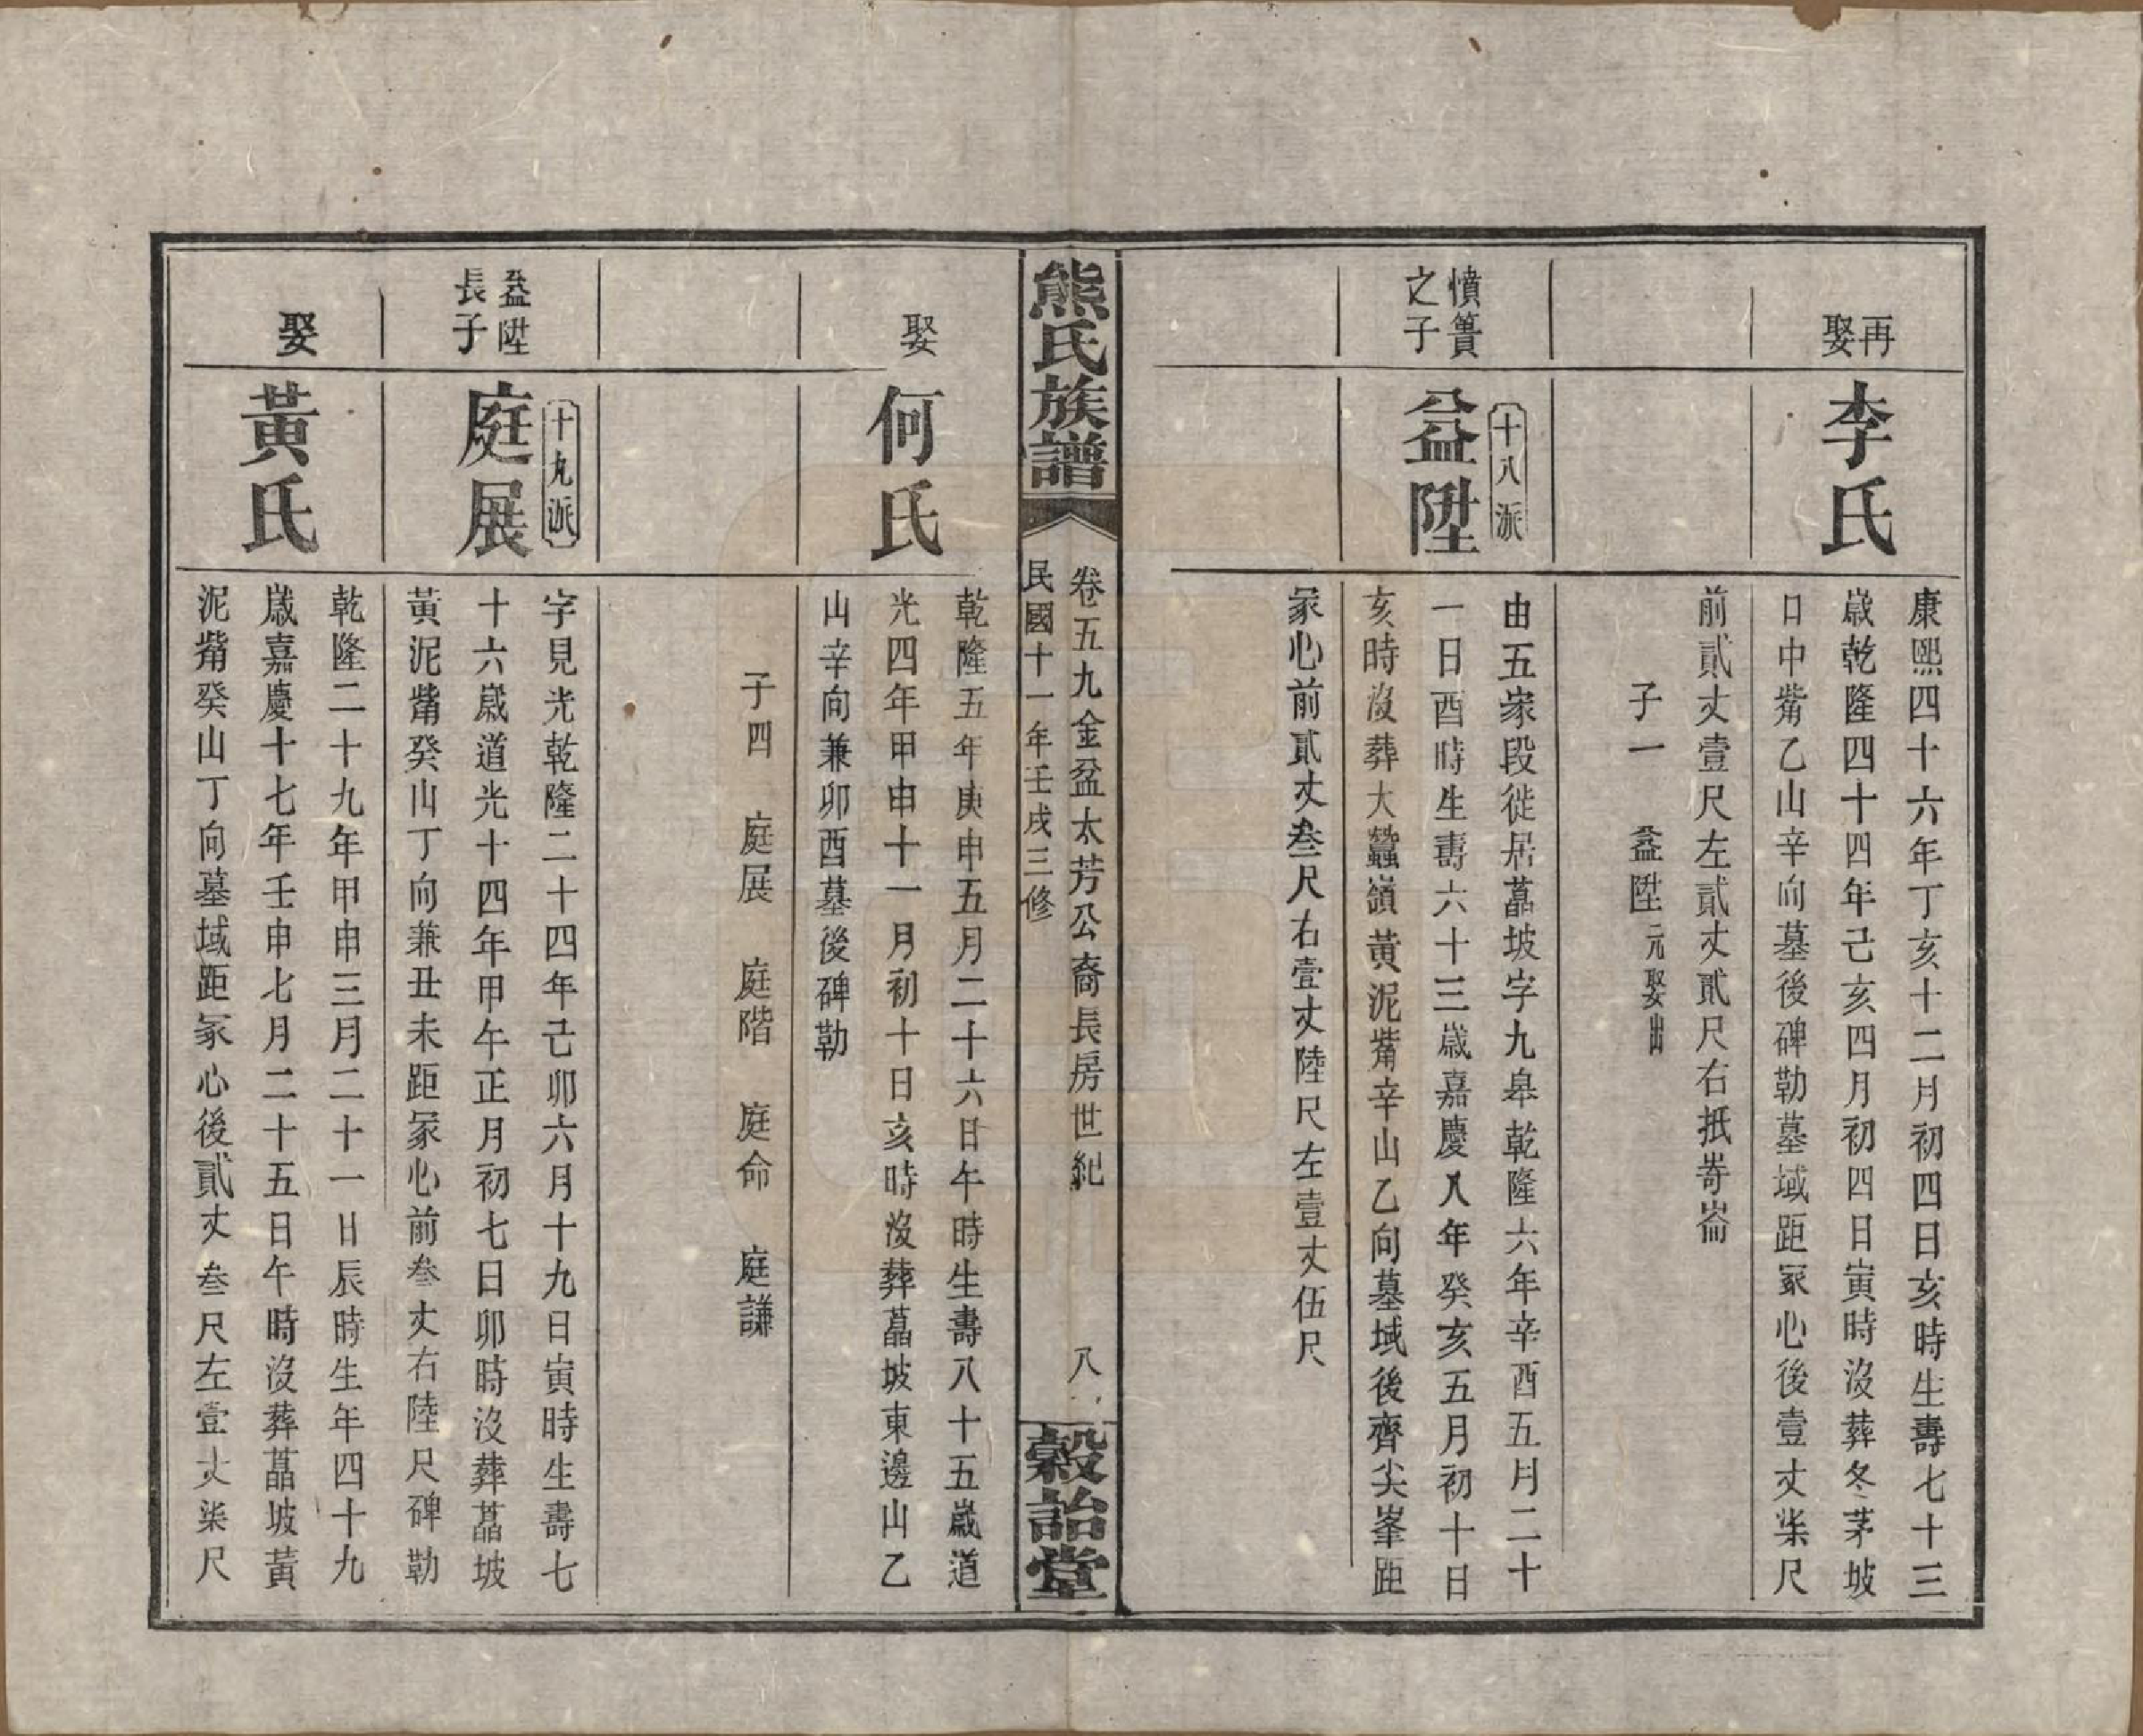 再
娶
李氏
康熙四十六年丁亥十二月初四日亥時生壽七十三
歲乾隆四十四年己亥四月初四日寅時沒葬冬茅坡
口中觜乙山辛向墓後碑勒墓域距冢心後壹丈柒尺
前貳丈壹尺左貳丈貳尺右抵嵜崙
子一　益陞元娶出
憤簣
之子
十八派
益陞
由五家段徙居藠坡字九皋乾隆六年辛酉五月二十
一日酉時生壽六十三歲嘉慶八年癸亥五月初十日
亥時沒葬大蠶嶺黃泥觜辛山乙向墓域後齊尖峯距
冢心前貳丈叁尺右壹丈陸尺左壹丈伍尺
熊氏族譜
卷五九金盆太芳公裔長房世紀　八
民國十一年壬戌三修
穀詒堂
娶
何氏
乾隆五年庚申五月二十六日午時生壽八十五歲道
光四年甲申十一月初十日亥時沒葬藠坡東邊山乙
山辛向兼卯酉墓後碑勒
子四　庭展　庭階　庭命　庭謙
益陞
長子
十九派
庭展
字見光乾隆二十四年己卯六月十九日寅時生壽七
十六歲道光十四年甲午正月初七日卯時沒葬藠坡
黃泥觜癸山丁向兼丑未距冢心前叁丈右陸尺碑勒
娶
黃氏
乾隆二十九年甲申三月二十一日辰時生年四十九
歲嘉慶十七年壬申七月二十五日午時沒葬藠坡黃
泥觜癸山丁向墓域距冢心後貳丈叁尺左壹丈柒尺